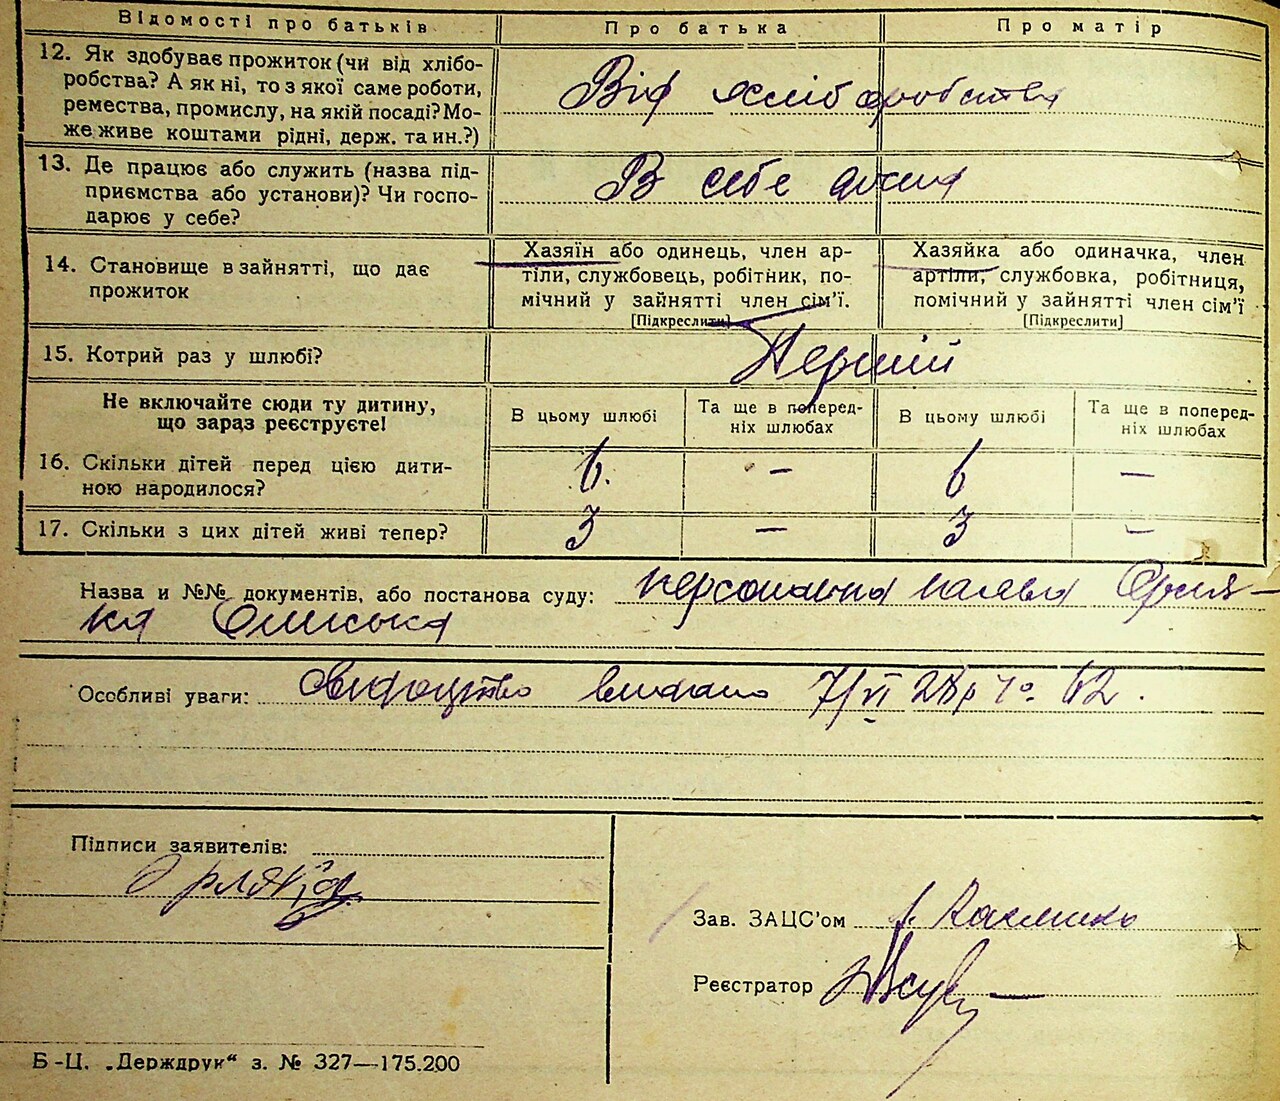 Відомості про батьків Про батька Про матір
12. Як здобуває прожиток (чи від хлібо-
робства? А як ні, то з якої саме роботи,
ремества, промислу, на якій посаді? Мо-
же живе коштами рідні, держ. та ин.?)
Від хліборобства
13. Де працює або служить (назва під-
приємства або установи)? Чи госпо-
дарює у себе?
В себе дома
14. Становище в зайнятті, що дає
прожиток
Хазяїн або одинець, член ар-
тіли, службовець, робітник, по-
мічний у зайнятті член сім'ї.
[Підкреслити]
Хазяйка або одиначка, член
артіли, службовка, робітниця,
помічний у зайнятті член сім'ї
[Підкреслити]
15. Котрий раз у шлюбі?
Перший
Не включайте сюди ту дитину,
що зараз реєструєте!
В цьому шлюбі
Та ще в поперед-
ніх шлюбах
В цьому шлюбі
Та ще в поперед-
ніх шлюбах
16. Скільки дітей перед цією дити-
ною народилося?
6. – 6 –
17. Скільки з цих дітей живі тепер?
3 – 3 –
Назва и №№ документів, або постанова суду: персональна Орля-
ка
Особливі уваги: Свидоцтво видано 7/VI 28 р 62.
Підписи заявителів:
Орляка
Зав. ЗАЦС'ом
Реєстратор
Б-Ц. „Держдрук“ з. № 327—175.200